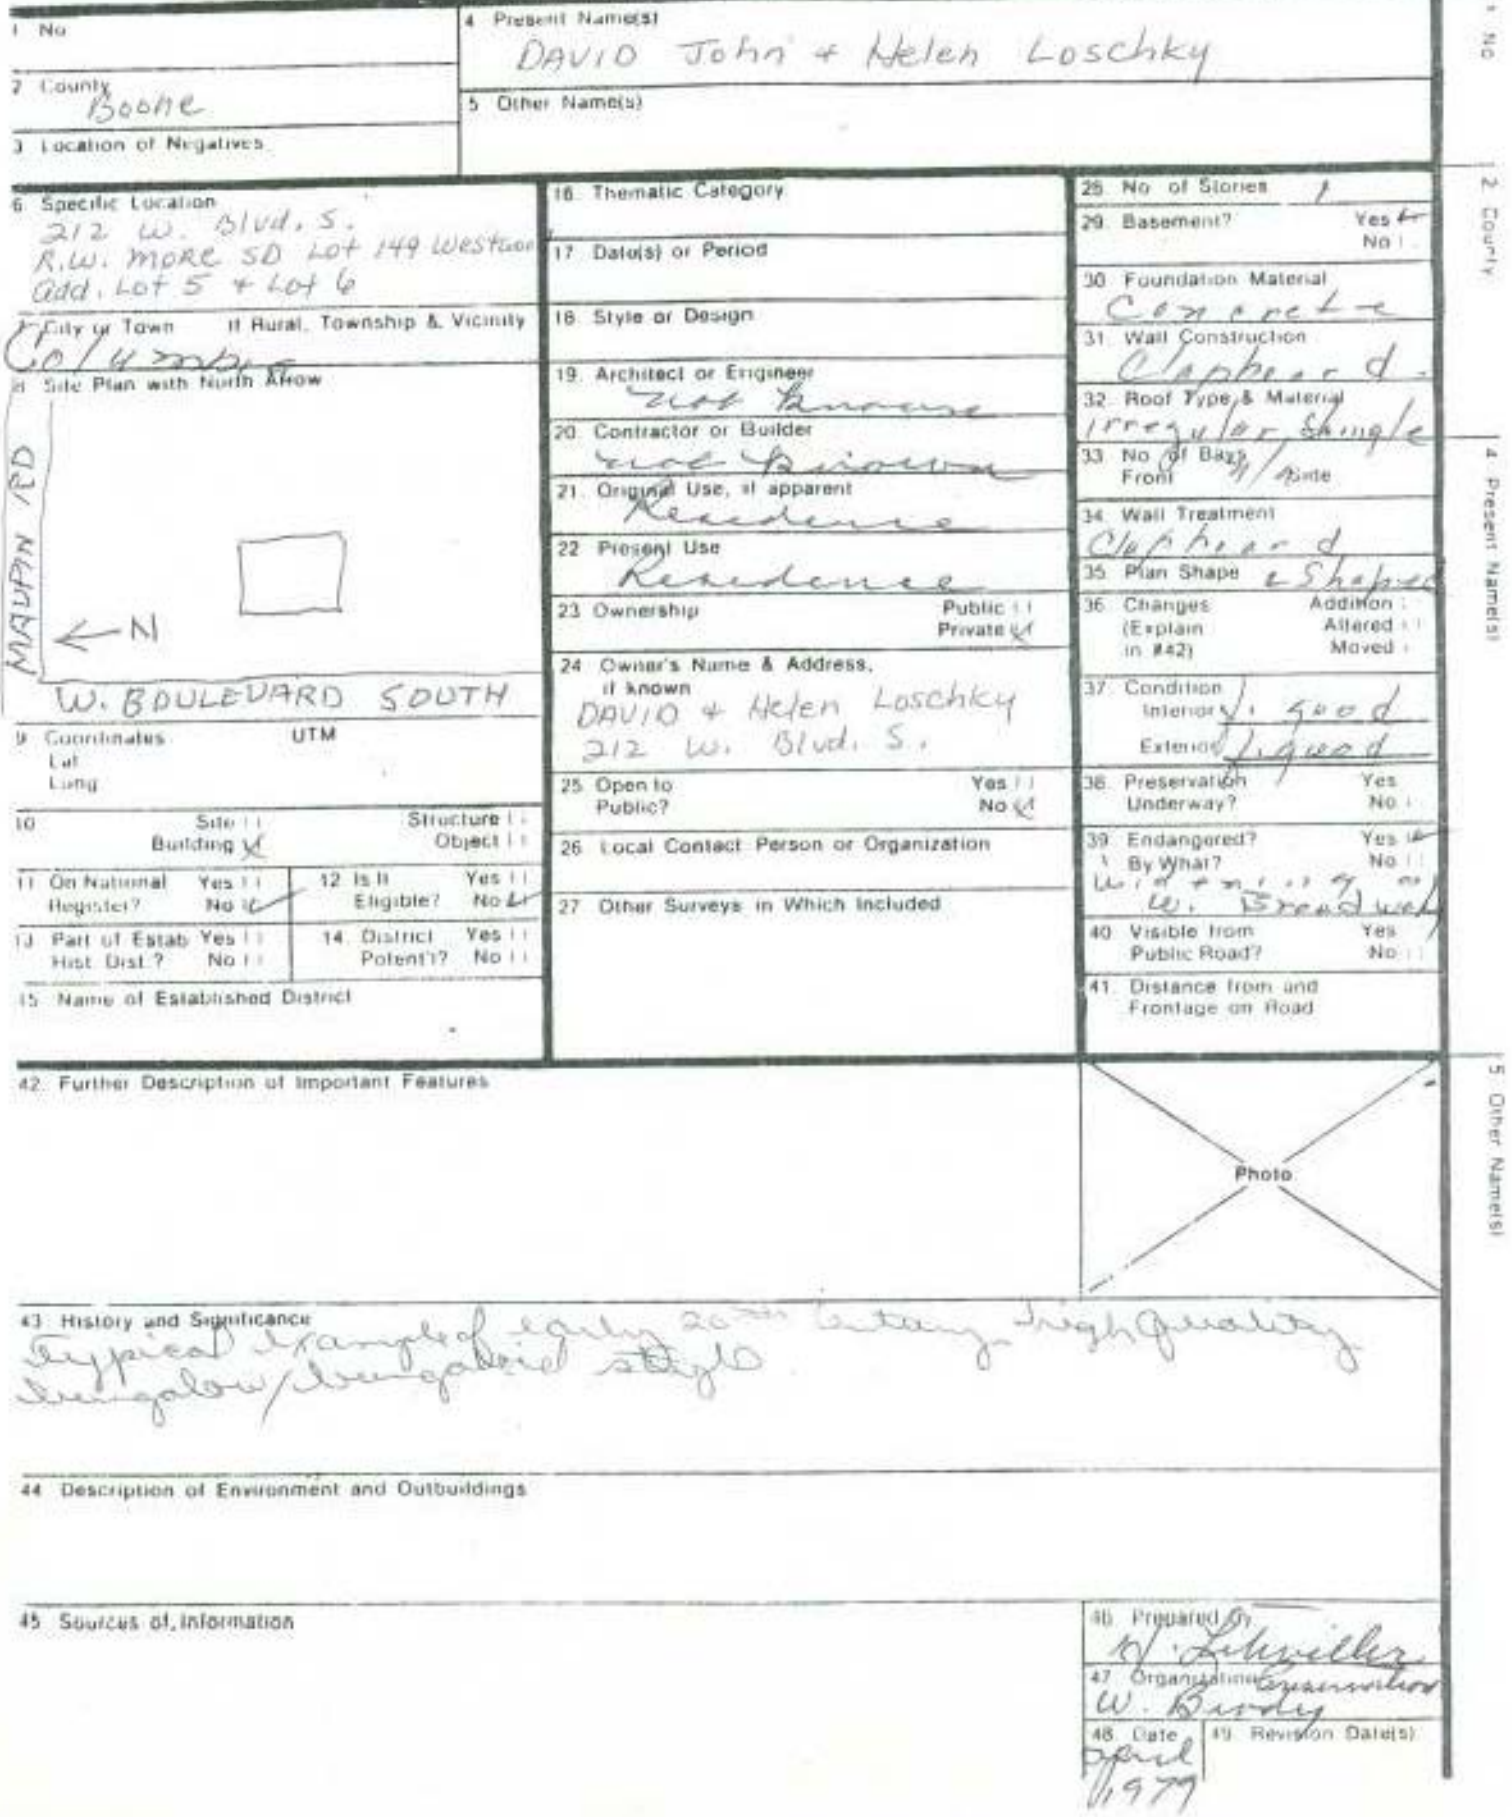 1 No
4 Present Name(s)
DAVID John + Helen Loschky
2 County
Boone
5 Other Name(s)
3 Location of Negatives
6 Specific Location
212 W. Blvd. S.
R.W. MORE SD Lot 149 Westwoo
Add. Lot 5 + Lot 6
7 City or Town If Rural, Township & Vicinity
Columbia
8 Site Plan with North Arrow
MAUPIN RD
← N
W. BOULEVARD SOUTH
9 Coordinates UTM
Lat
Long
10 Site Structure
Building Object
11 On National Register? Yes No
12 Is It Eligible? Yes No
13 Part of Estab Hist. Dist.? Yes No
14. District Potent'l? Yes No
15 Name of Established District
16. Thematic Category
17 Date(s) or Period
18 Style or Design
19. Architect or Engineer
not known
20. Contractor or Builder
not known
21. Original Use, if apparent
Residence
22 Present Use
Residence
23 Ownership Public
Private
24 Owner's Name & Address,
if known
DAVID + Helen Loschky
212 W. Blvd. S.
25 Open to Public? Yes
No
26 Local Contact Person or Organization
27 Other Surveys in Which Included
28. No of Stories 1
29. Basement? Yes
No
30 Foundation Material
Concrete
31. Wall Construction
Clapboard
32. Roof Type & Material
Irregular, Shingle
33 No of Bays
Front Side
34 Wall Treatment
Clapboard
35 Plan Shape L Shaped
36 Changes Addition
(Explain Altered
in #42) Moved
37 Condition
Interior good
Exterior good
38. Preservation Yes
Underway? No
39 Endangered? Yes
By What? No
Widening of
W. Broadway
40 Visible from Yes
Public Road? No
41. Distance from and
Frontage on Road
42. Further Description of Important Features
Photo
43 History and Significance
Typical example of early 20th Century high quality
bungalow/bungaloid style
44 Description of Environment and Outbuildings
45 Sources of Information
46 Prepared by
47 Organization
W. Bvdy
48. Date
April
1979
49. Revision Date(s)
1 No
2 County
4 Present Name(s)
5 Other Name(s)